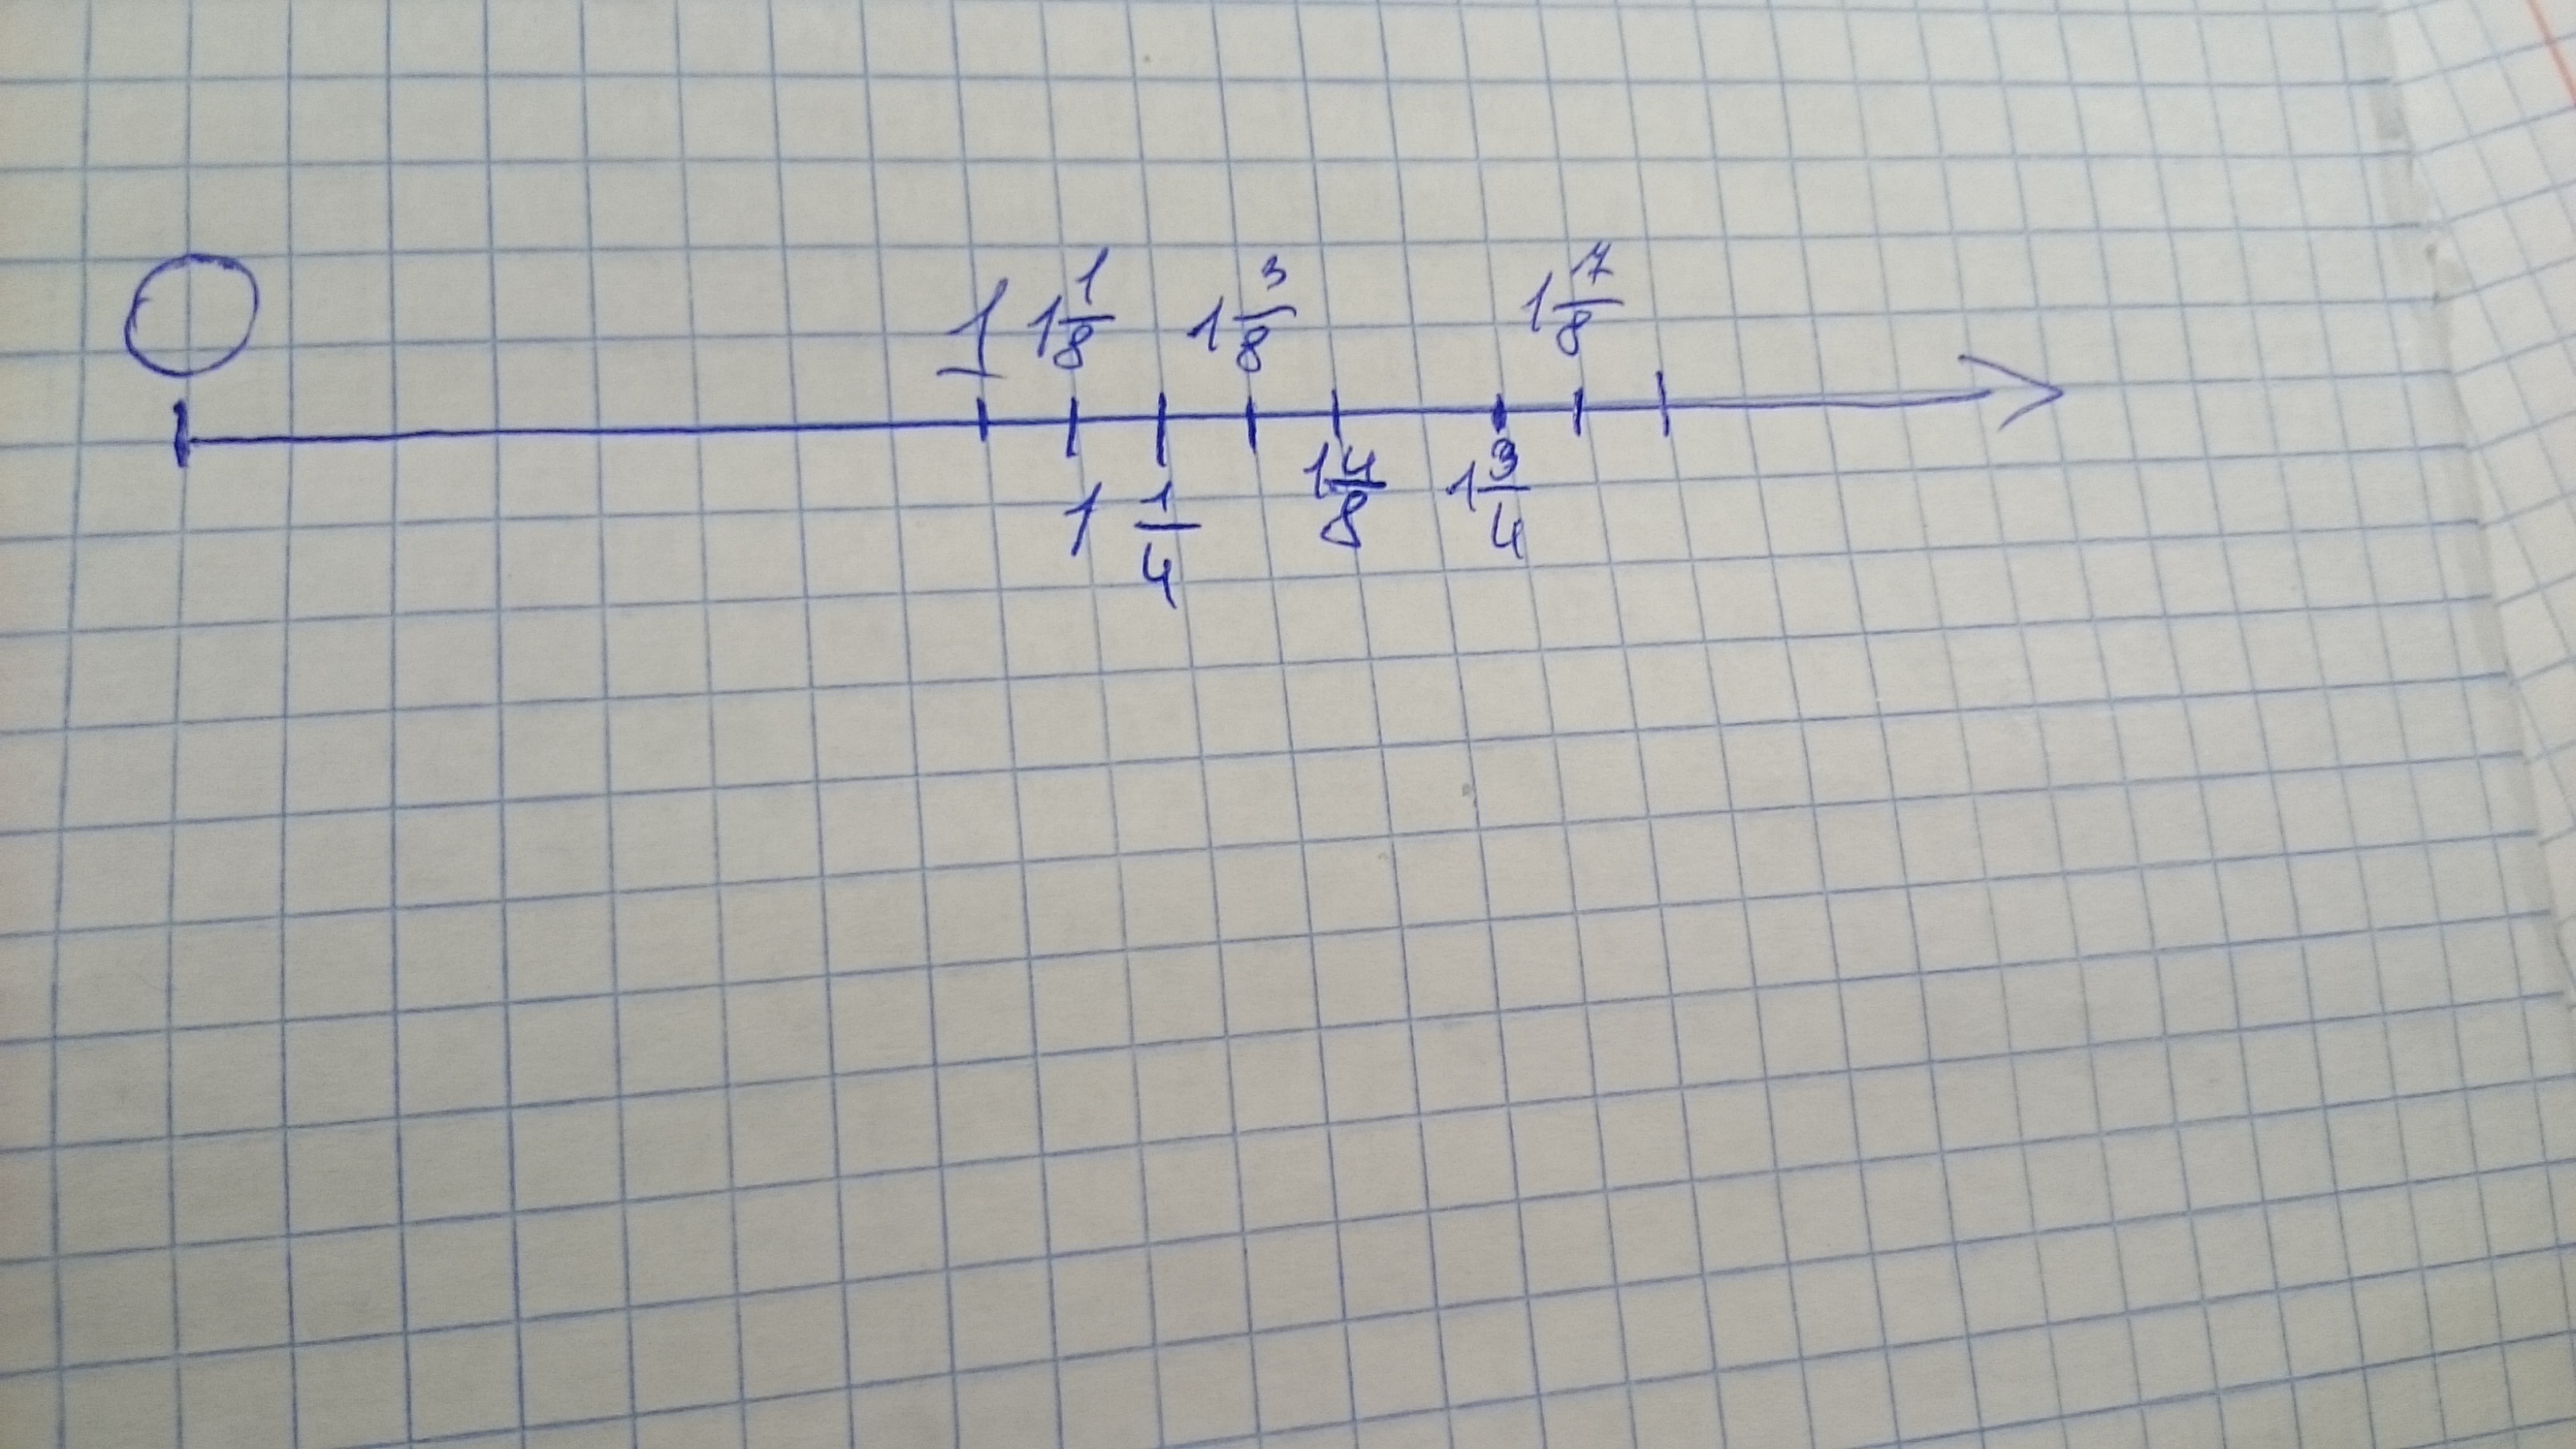 0 1 1 1/8 1 3/8 1 7/8
1 1/4 1 4/8 1 3/4